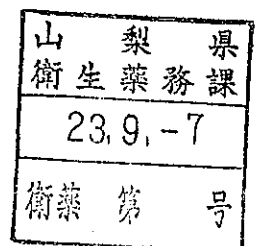 山梨県
衛生薬務課
23.9.-7
衛薬第 号